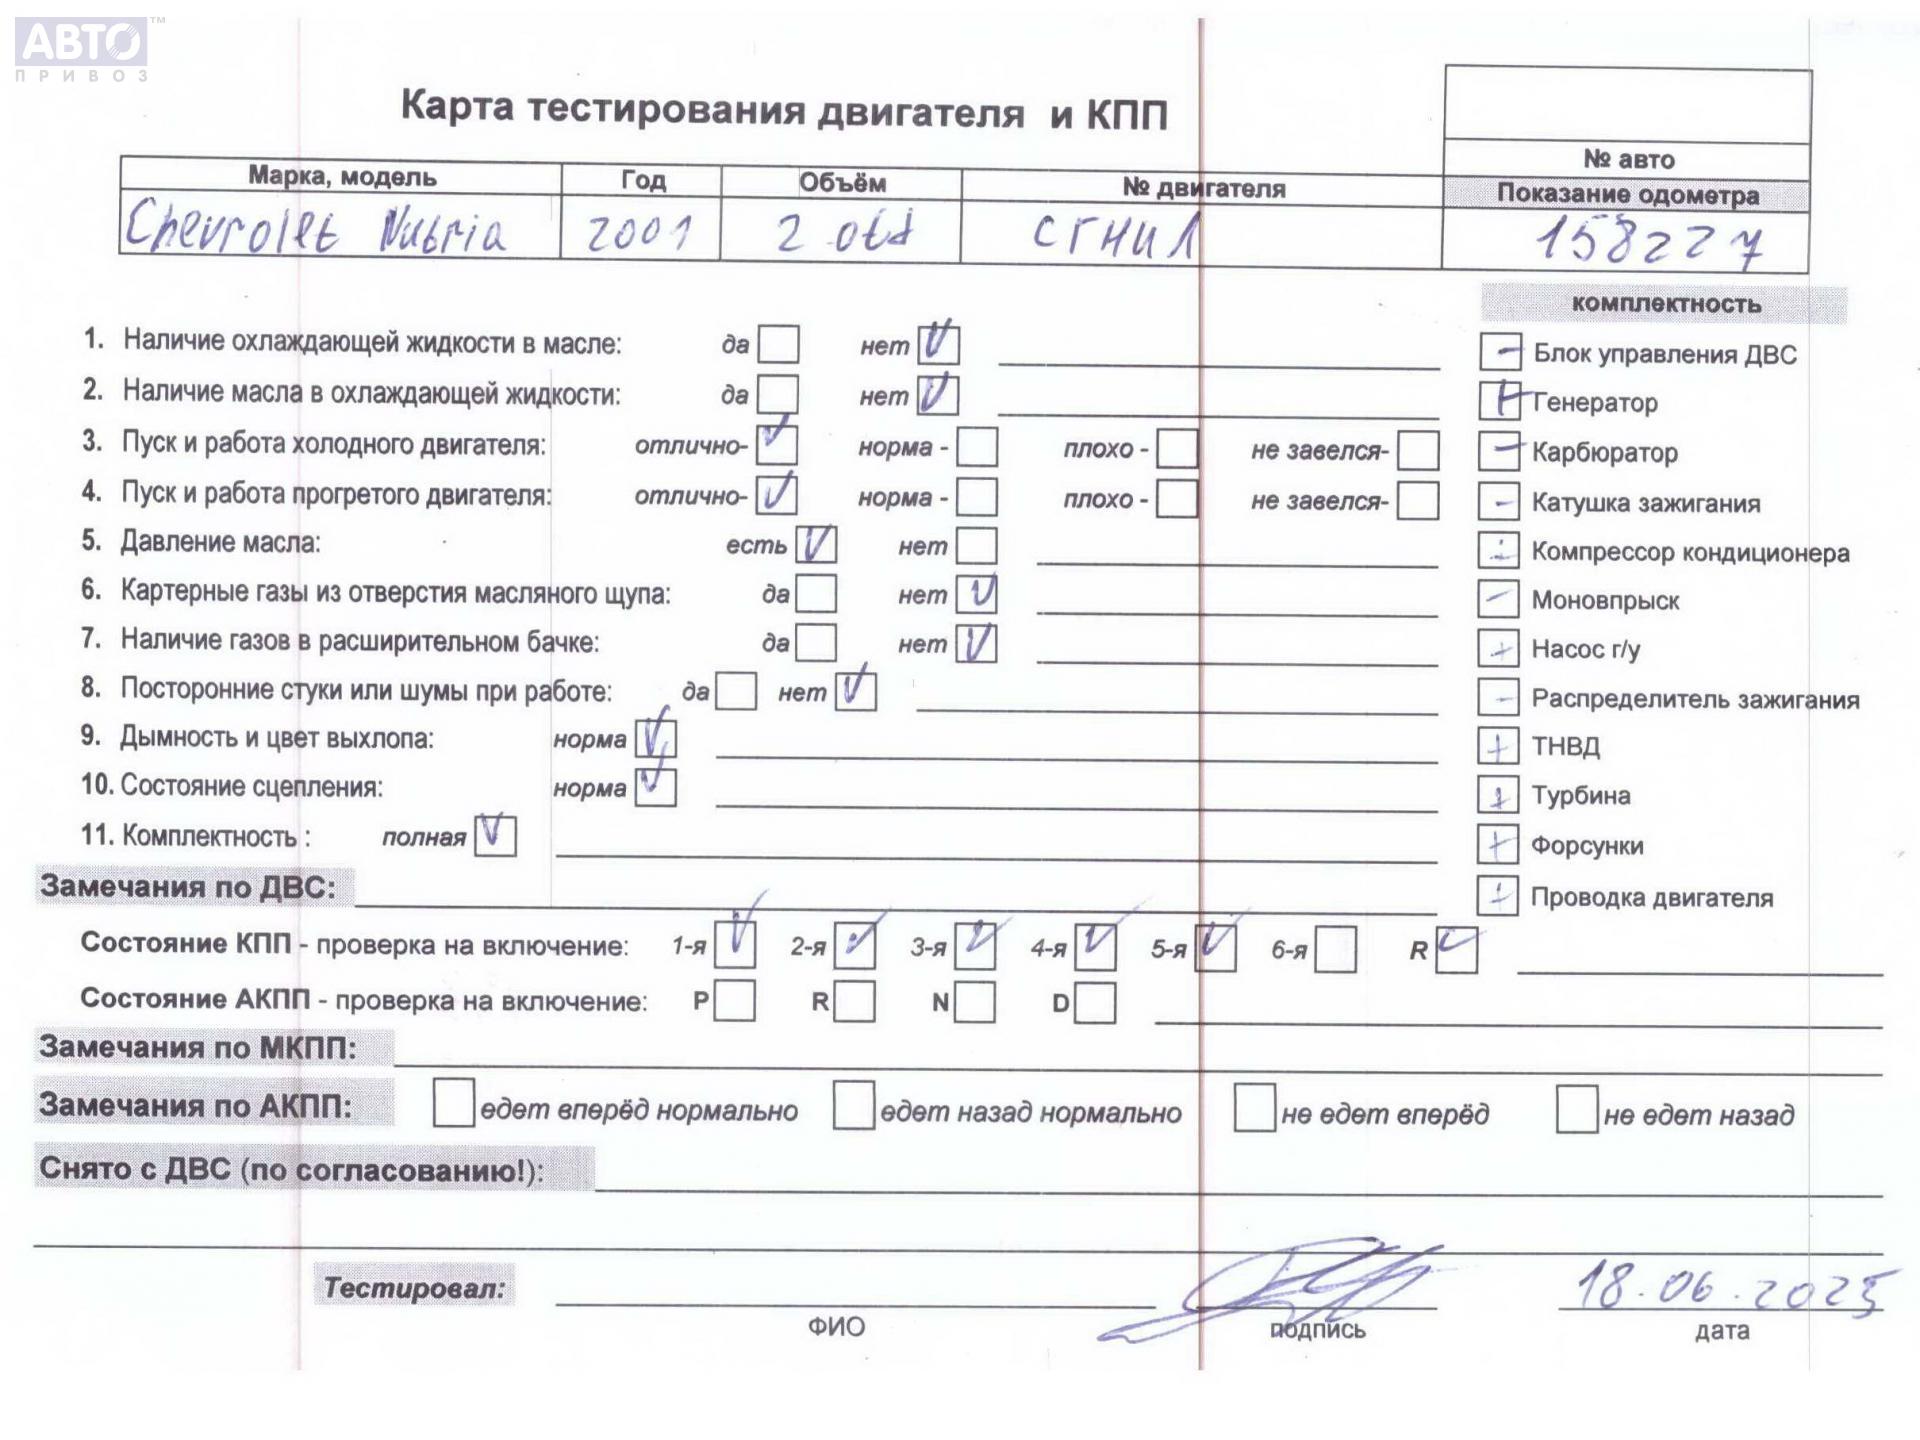 АВТО™
ПРИВОЗ
Карта тестирования двигателя и КПП
№ авто
Марка, модель Год Объём № двигателя Показание одометра
Chevrolet Nubria 2001 2 СГНИЛ 158227
комплектность
1. Наличие охлаждающей жидкости в масле: да нет V
- Блок управления ДВС
2. Наличие масла в охлаждающей жидкости: да нет V
+ Генератор
3. Пуск и работа холодного двигателя: отлично- V норма - плохо - не завелся-
- Карбюратор
4. Пуск и работа прогретого двигателя: отлично- V норма - плохо - не завелся-
- Катушка зажигания
5. Давление масла: есть V нет
Компрессор кондиционера
6. Картерные газы из отверстия масляного щупа: да нет V
- Моновпрыск
7. Наличие газов в расширительном бачке: да нет V
+ Насос г/у
8. Посторонние стуки или шумы при работе: да нет V
- Распределитель зажигания
9. Дымность и цвет выхлопа: норма V
+ ТНВД
10. Состояние сцепления: норма V
+ Турбина
11. Комплектность : полная V
+ Форсунки
Замечания по ДВС:
+ Проводка двигателя
Состояние КПП - проверка на включение: 1-я V 2-я V 3-я V 4-я V 5-я V 6-я R V
Состояние АКПП - проверка на включение: P R N D
Замечания по МКПП:
Замечания по АКПП: едет вперёд нормально едет назад нормально не едет вперёд не едет назад
Снято с ДВС (по согласованию!):
Тестировал: 18.06.2025
ФИО подпись дата